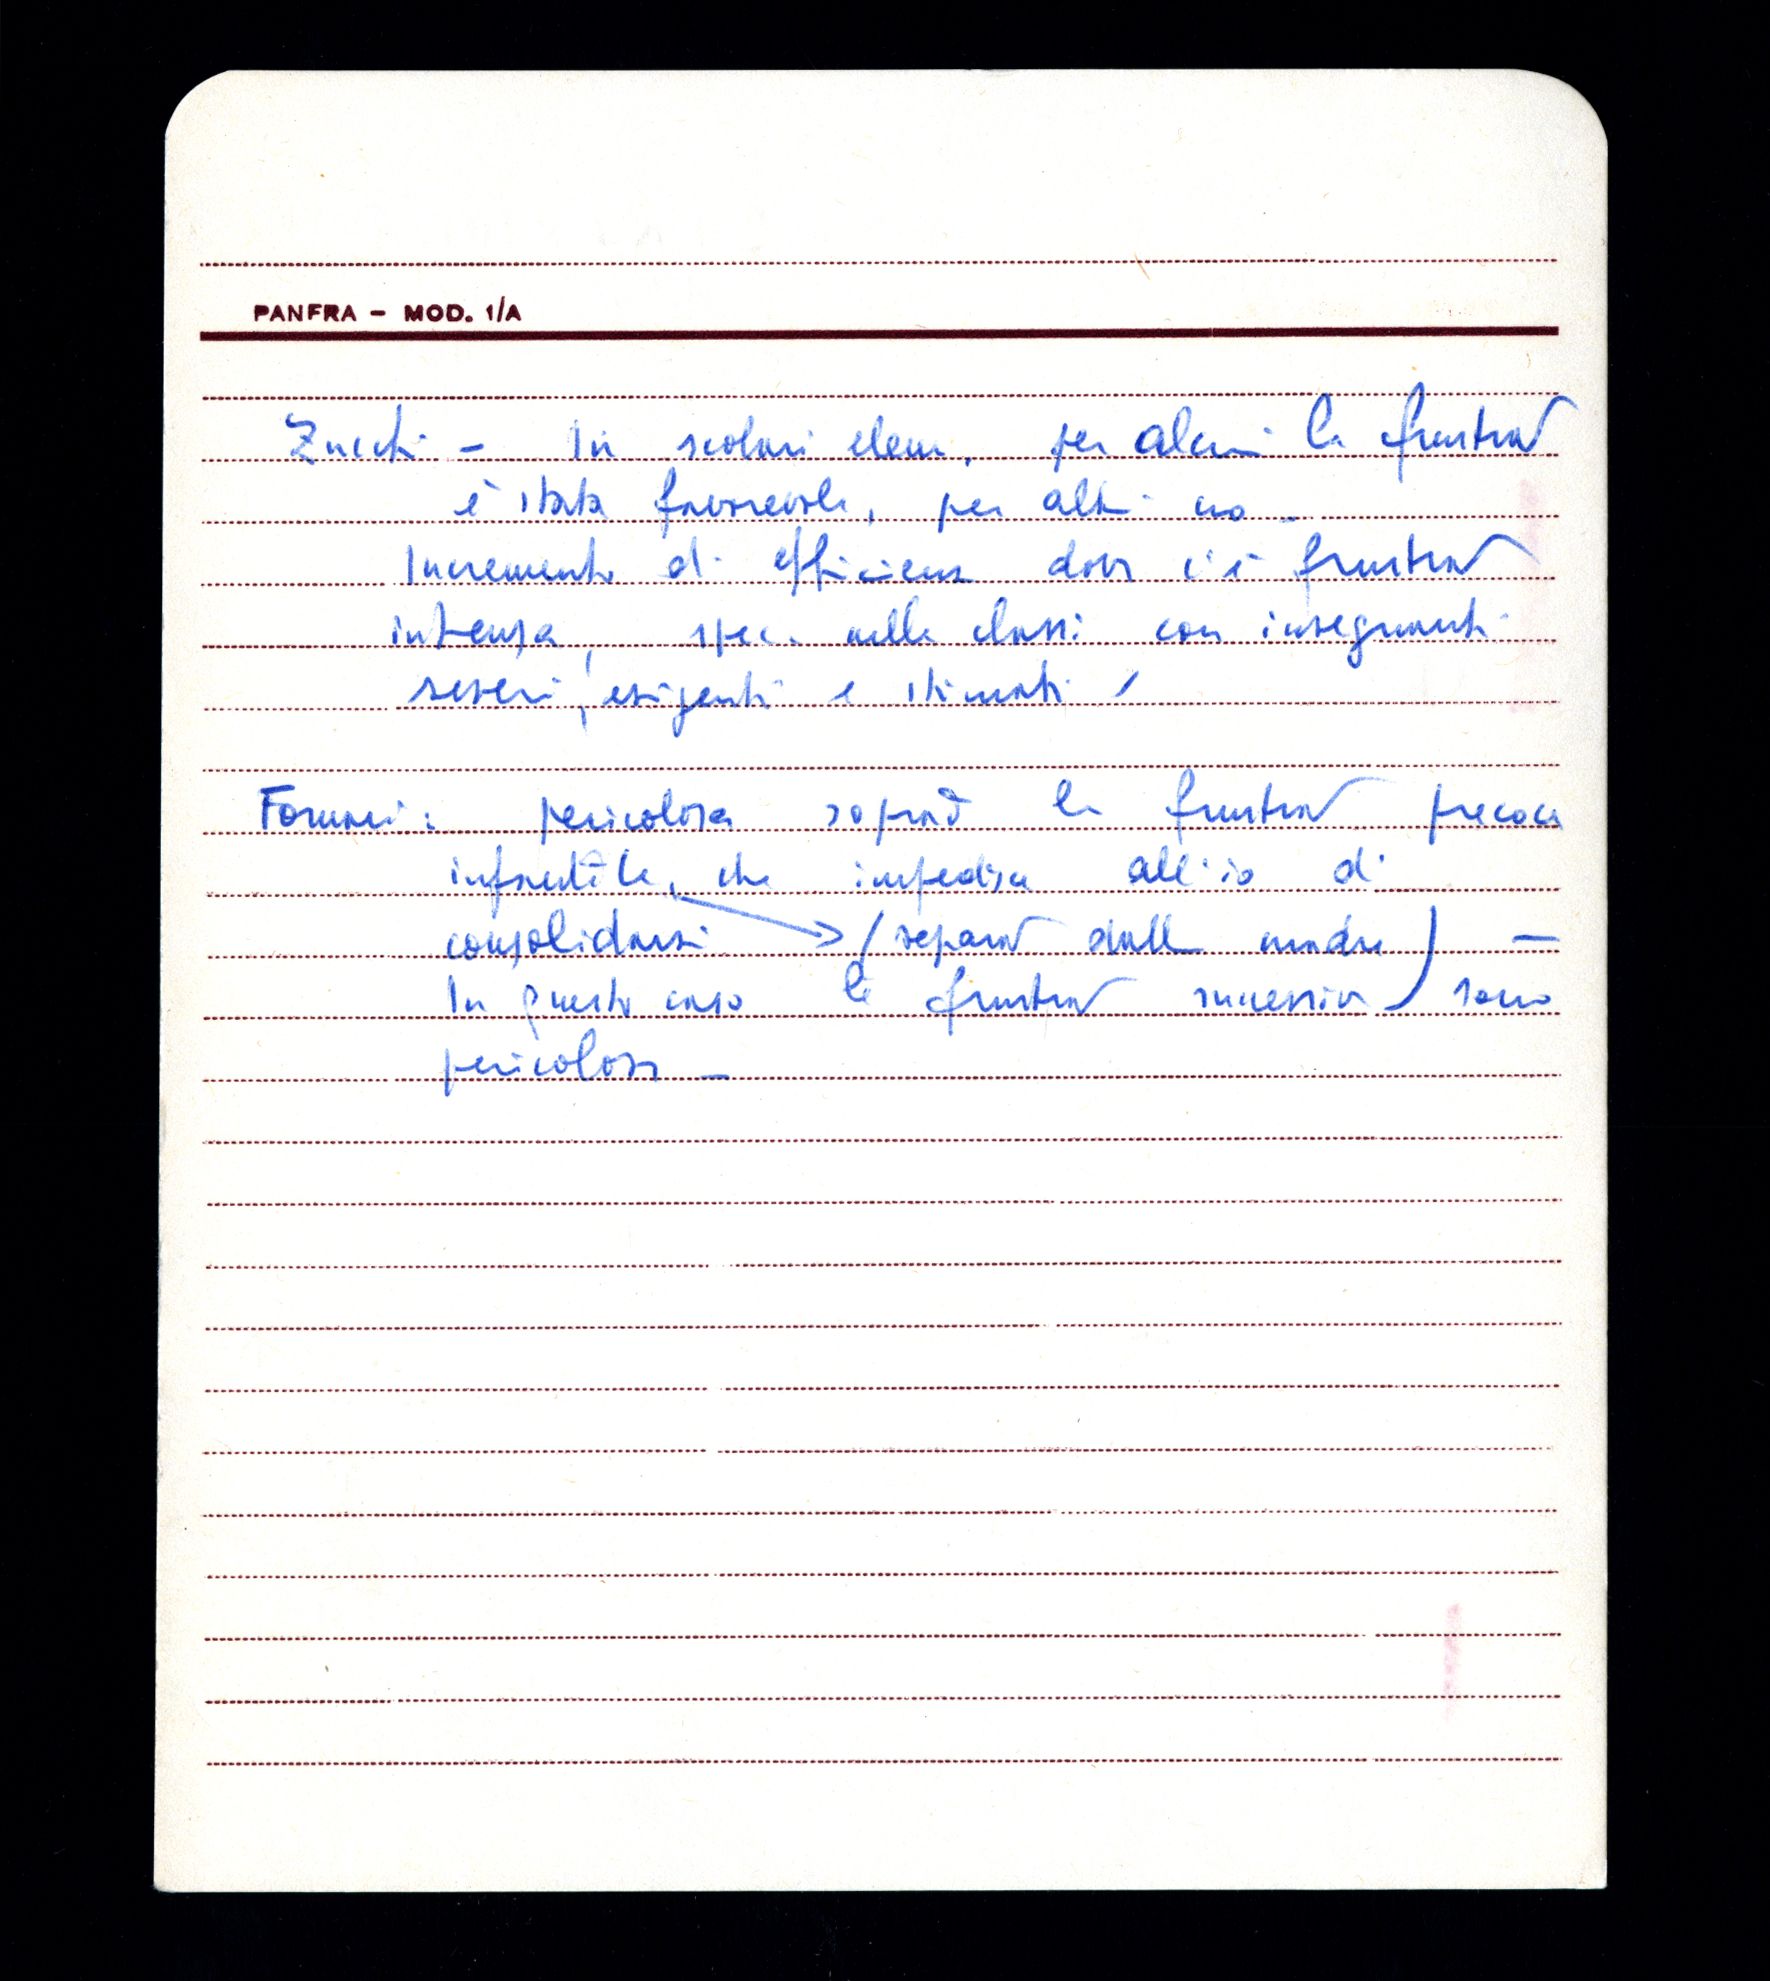 PANFRA – MOD. 1/A
Zucchi - In scolari elem. per alcuni la frustraz
è stata favorevole, per altri no -
Incremento di efficienza dove c'è frustraz
intensa, spec. nelle classi con insegnanti
severi, esigenti e stimati
Fornari: pericolosa soprat la frustraz precoce
infantile, che impedisce all'io di
consolidarsi → (separaz dalla madre) -
In questo caso le frustraz successive sono
pericolose -